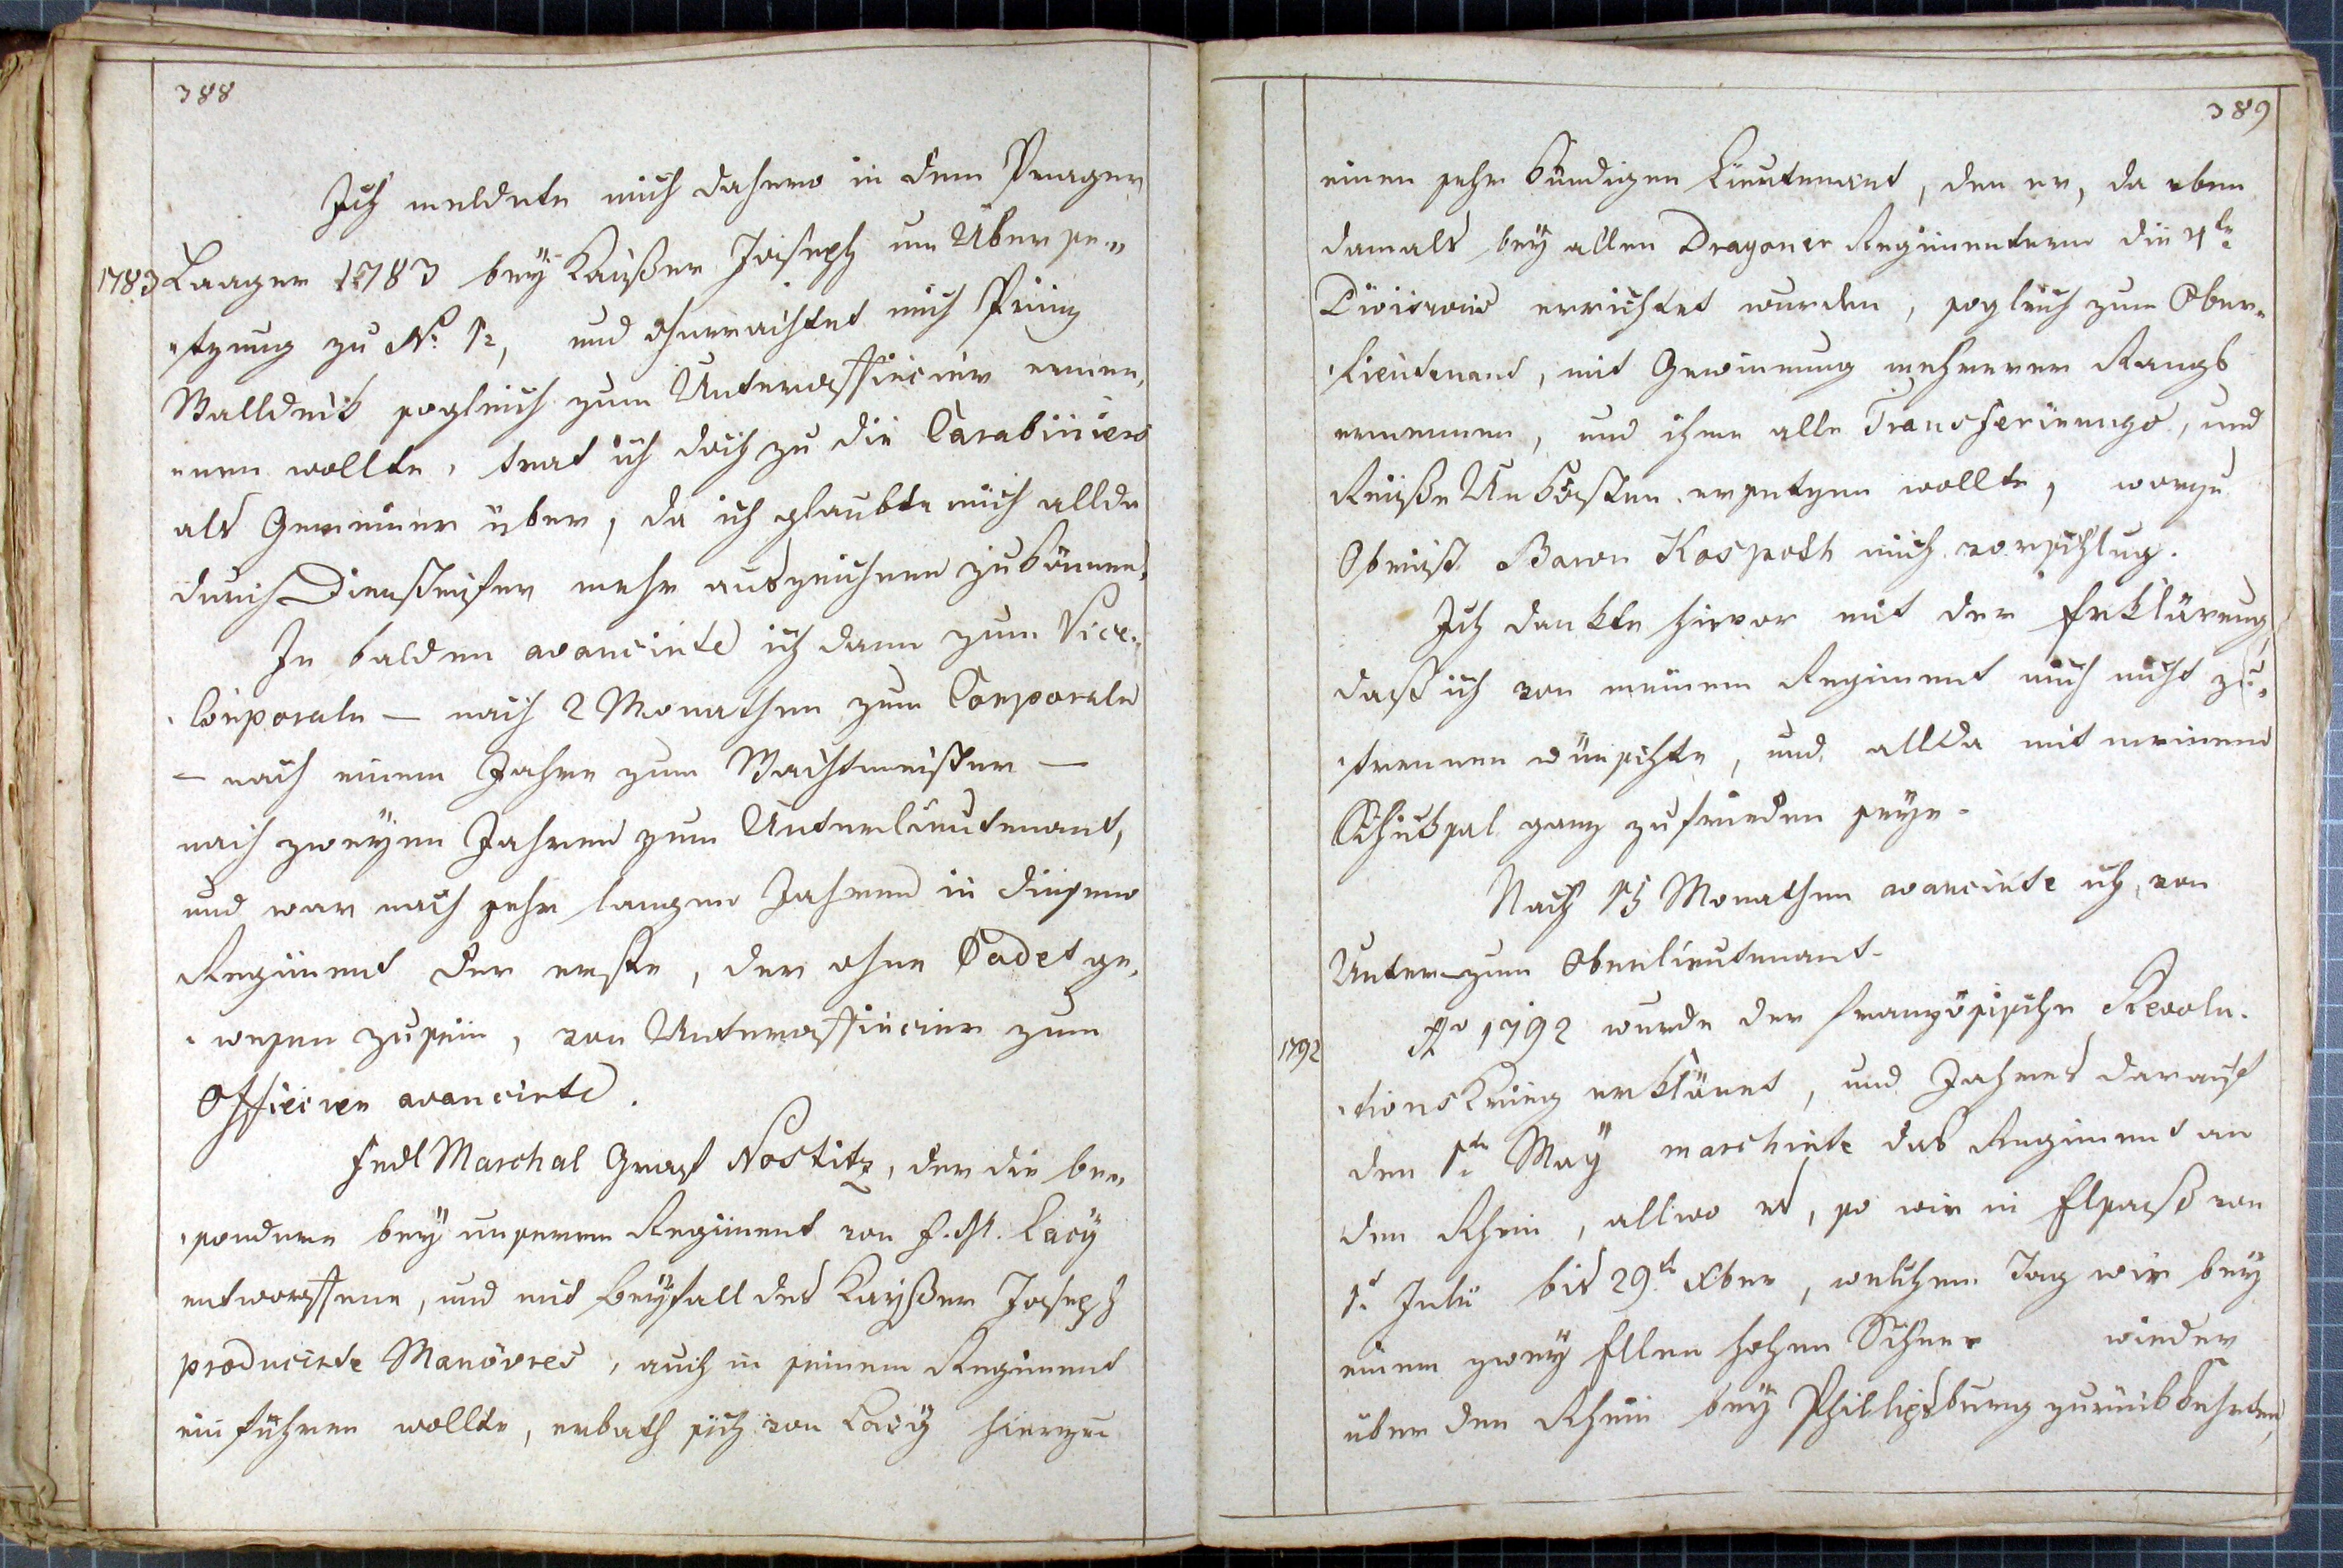 388
Ich meldete mich dahero in dem Prager
1783 Laager 1783 bey Kaißer Joseph um Überse„
„tzung zu No. 1, und ohnerachtet mich Prinz
Walldeik sogleich zum Unterofficier ernen„
„nen wollte, trat ich doch zu die Carabiniers
als Gemeiner über, da ich glaubte mich allda
durch Diensteifer mehr auszeichnen zu können.
In balden avancirte ich dann zum Vice„
„Corporaln — nach 2 Monathen zum Corporaln
— nach einem Jahre zum Wachtmeister —
nach zweyen Jahren zum Unterlieutenant,
und war nach sehr langen Jahren in diesem
Regiment der erste, der ohne Cadet ge„
„wesen zu sein, von Unterofficier zum
Officier avancirte.
Fedl Marchal Graf Nostitz, der die be„
„sondere bey unserem Regiment von F. M. Lacÿ
entworffene, und mit Beyfall des Kayßer Joseph
producirte Manövres, auch in seinem Regiment
einführen wollte, erbath sich von Lacÿ hierzu
389
einen sehr kündigen Lieutenant, den er, da eben
damals bey allen Dragoner Regimentern die 4te
Divisions errichtet wurden, sogleich zum Ober„
„Lieutenant, mit Gewinnung mehrerer Rangs
ernennen, und ihme alle Transferirungs, und
Reiße Unkösten ersetzen wollte, worzu
Obrist Baron Kospoth mich vorschlug.
Ich dankte hievor mit der Erklärung,
daß ich von meinem Regiment mich nicht zu„
„trennen wünschte, und allda mit meinem
Schicksal ganz zufrieden seye.
Nach 15 Monathen avancirte ich von
Unter- zum Oberlieutenant.
1792 Ao 1792 wurde der französische Revolu„
„tions Krieg erkläret, und Jahres darauf
den 1ten May marchirte das Regiment an
den Rhein, allwo es, so wir in Elsaß von
1t Julii bis 29ten Xber, welchen Tag wir bey
einem zwey Ellen hohen Schnee wieder
über den Rhein bey Phillipsburg zurückkehrten,